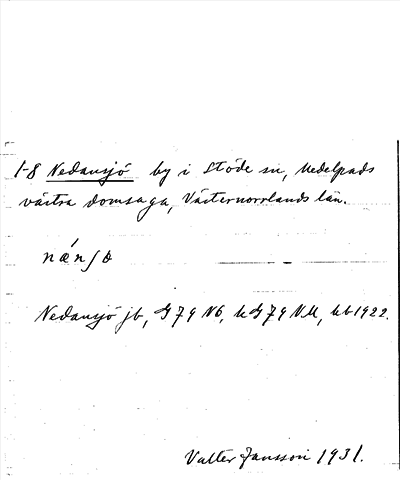 1-8 Nedansjö by i Stöde sn, Medelpads
västra domsaga, Västernorrlands län.
Nedansjö jb, G 79 NÖ, k G 79 NV, kb 1922.
Valter Jansson 1931.